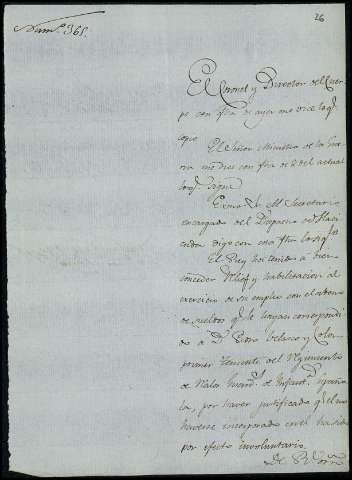 Num.º 361.
26
El Coronel y Director del Cuer-
po con fha de ayer me dice lo q.e
copio
El Señor Ministro de la Guerra
me dice con fha de 8 del actual
lo q.e sigue
Exmo. Sr. Al Secretario
encargado del Despacho de Haci-
enda digo con esta fha lo sig.te
El Rey ha tenido a bien
conceder relief y habilitacion al
exercicio de su empleo con el abono
de sueldos q.e le hayan correspondi-
do á D.n Pedro Velasco y
primer Teniente del Regimiento
de de Infant.a Españo-
la, por haver justificado que el no
haverse incorporado en el ha sido
por efecto involuntario.
De R.l orn